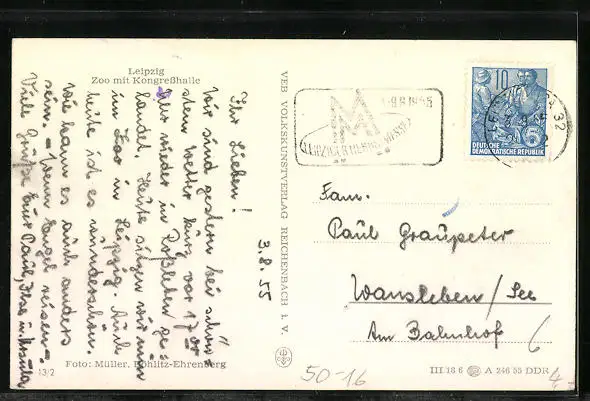 Leipzig
Zoo mit Kongreßhalle
Ihr Lieben!
Wir sind gestern bei schön-
stem Wetter kurz vor 17 Uhr
wieder in Roßleben ge-
landet. Heute sitzen wir nun
im Zoo in Leipzig. Auch
heute ist es wunderschön.
Wie kann es auch anders
sein. - Wenn Engel reisen -
Viele Grüße Eure Paul, Ilse u. Ursula
3.8.55
Foto: Müller, Böhlitz-Ehrenberg
13/2
VEB VOLKSKUNSTVERLAG REICHENBACH I. V.
LEIPZIGER MESSE
10
DEUTSCHE
DEMOKRATISCHE REPUBLIK
5
Fam.
Paul Graupeter
Wansleben / See
Am Bahnhof 6
50-16
III 18 6 A 246 55 DDR
4,-